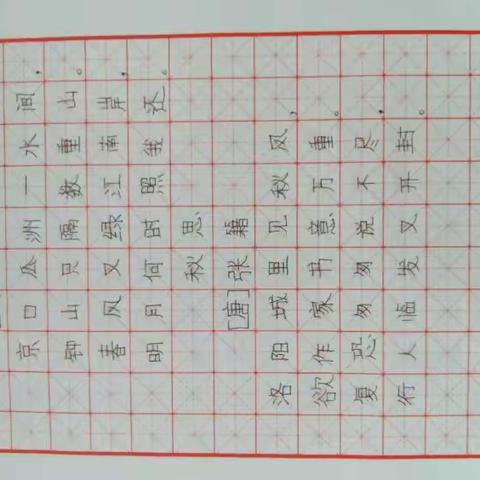 京口瓜洲一水间，
钟山只隔数重山。
春风又绿江南岸，
明月何时照我还。
秋思
[唐]张籍
洛阳城里见秋风，
欲作家书意万重。
复恐匆匆说不尽，
行人临发又开封。